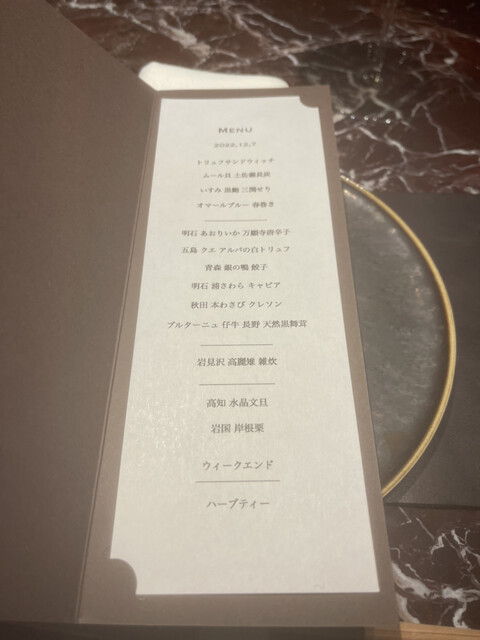 MENU
2022.12.7
トリュフサンドウィッチ
ムール貝 土佐酢長崎
いすみ 黒鮑 三関せり
オマールブルー 春巻き
明石 あおりいか 万願寺唐辛子
五島 クエ アルバの白トリュフ
青森 銀の鴨 餃子
明石 浦さわら キャビア
秋田 本わさび クレソン
ブルターニュ 仔牛 長野 天然黒舞茸
岩見沢 高麗雉 雑炊
高知 水晶文旦
岩国 岸根栗
ウィークエンド
ハーブティー